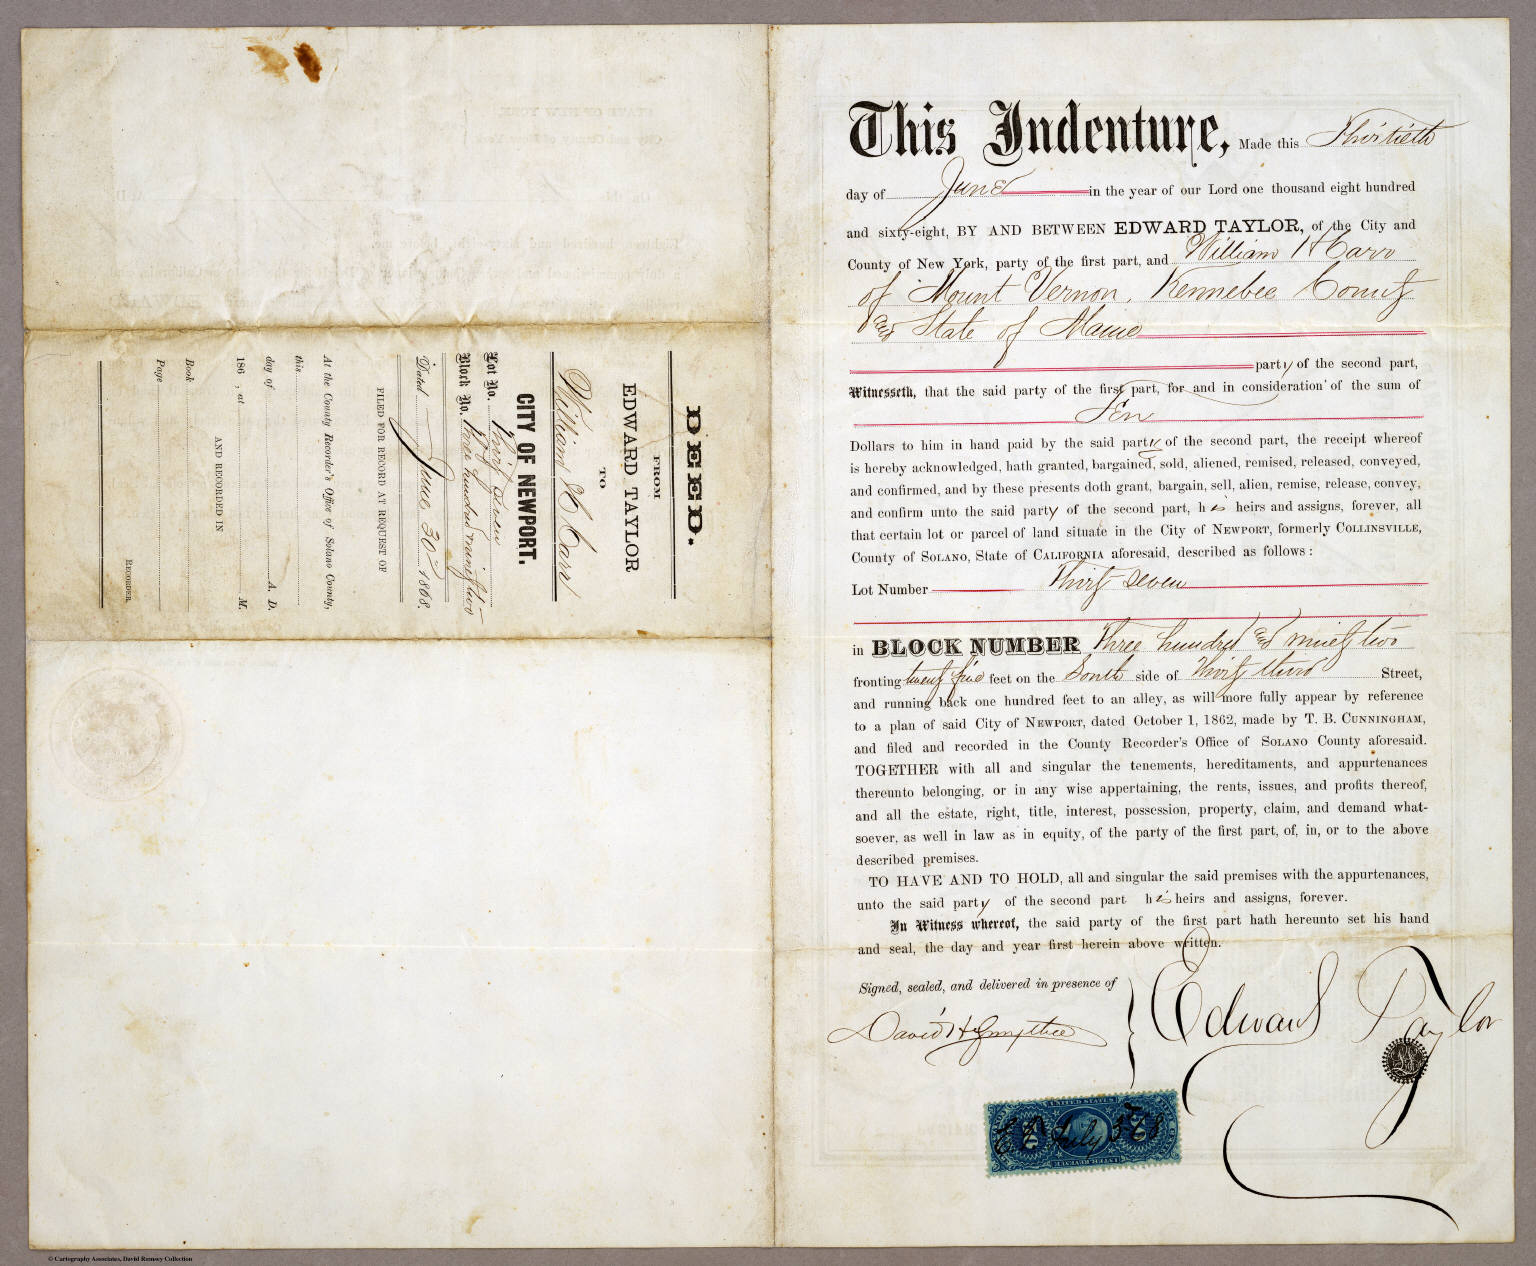 DEED.
FROM
EDWARD TAYLOR
TO
William H Carr
CITY OF NEWPORT.
Lot No. Thirty seven
Block No. Three hundred ninety two
Dated June 30th 1868.
FILED FOR RECORD AT REQUEST OF
At the County Recorder's Office of Solano County,
this
day of A. D.
186 , at M.
AND RECORDED IN
Book
Page
RECORDER.
This Indenture, Made this Thirtieth
day of June in the year of our Lord one thousand eight hundred
and sixty-eight, BY AND BETWEEN EDWARD TAYLOR, of the City and
County of New York, party of the first part, and William H Carr
of Mount Vernon, Kennebec County
and State of Maine
party of the second part,
Witnesseth, that the said party of the first part, for and in consideration of the sum of
Ten
Dollars to him in hand paid by the said party of the second part, the receipt whereof
is hereby acknowledged, hath granted, bargained, sold, aliened, remised, released, conveyed,
and confirmed, and by these presents doth grant, bargain, sell, alien, remise, release, convey,
and confirm unto the said party of the second part, his heirs and assigns, forever, all
that certain lot or parcel of land situate in the City of NEWPORT, formerly COLLINSVILLE,
County of SOLANO, State of CALIFORNIA aforesaid, described as follows:
Lot Number Thirty seven
in BLOCK NUMBER Three hundred and ninety two
fronting twenty five feet on the South side of Thirty third Street,
and running back one hundred feet to an alley, as will more fully appear by reference
to a plan of said City of NEWPORT, dated October 1, 1862, made by T. B. CUNNINGHAM,
and filed and recorded in the County Recorder's Office of SOLANO County aforesaid.
TOGETHER with all and singular the tenements, hereditaments, and appurtenances
thereunto belonging, or in any wise appertaining, the rents, issues, and profits thereof,
and all the estate, right, title, interest, possession, property, claim, and demand what-
soever, as well in law as in equity, of the party of the first part, of, in, or to the above
described premises.
TO HAVE AND TO HOLD, all and singular the said premises with the appurtenances,
unto the said party of the second part his heirs and assigns, forever.
In Witness whereof, the said party of the first part hath hereunto set his hand
and seal, the day and year first herein above written.
Signed, sealed, and delivered in presence of
David H
Edward Taylor
UNITED STATES
INTER. REVENUE
July
© Cartography Associates, David Rumsey Collection